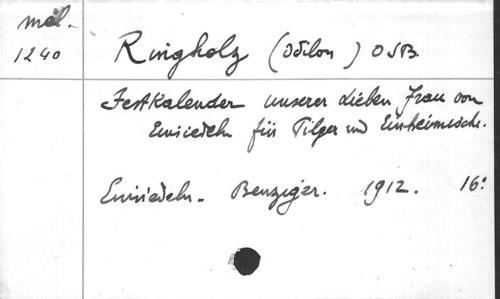 mél.
1240
Ringholz (Odilon) OSB.
Festkalender unserer Lieben Frau von
Einsiedeln für Pilger und Einheimische.
Einsiedeln. Benziger. 1912. 16°